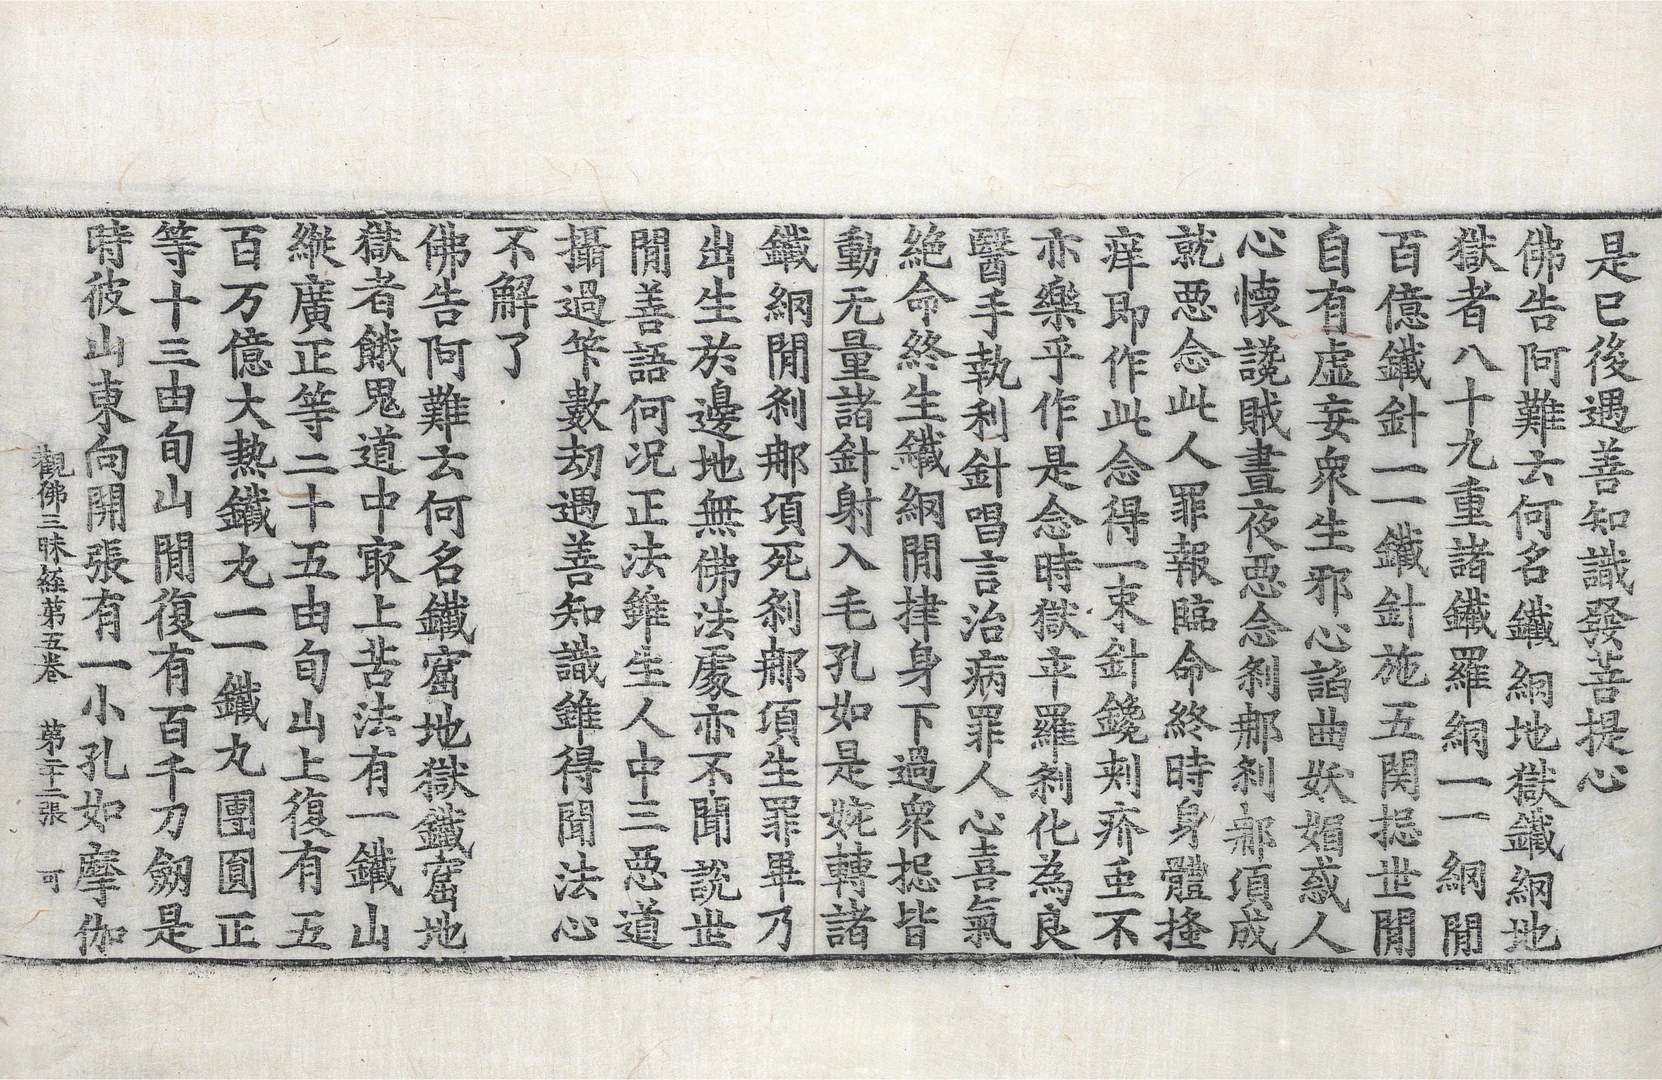 是已後遇善知識發菩提心
佛告阿難云何名鐵網地獄鐵網地
獄者八十九重諸鐵羅網一一網間
百億鐵針一一鐵針施五関捩世間
自有虛妄衆生邪心諂曲妖媚惑人
心懷讒賊晝夜惡念刹那刹那項成
就惡念此人罪報臨命終時身體搔
痒即作此念得一束針鑱刾疥虫不
亦樂乎作是念時獄卒羅刹化為良
醫手執利針唱言治病罪人心喜氣
絶命終生鐵網間㨖身下過衆捩皆
動无量諸針射入毛孔如是婉轉諸
鐵網間刹那項死刹那項生罪畢乃
出生於邊地無佛法處亦不聞說世
間善語何况正法雖生人中三惡道
攝過笇數劫遇善知識雖得聞法心
不解了
佛告阿難云何名鐵窟地獄鐵窟地
獄者餓鬼道中㝡上苦法有一鐵山
縱廣正等二十五由旬山上復有五
百万億大熱鐵丸一一鐵丸團圓正
等十三由旬山間復有百千刀劒是
時彼山東向開張有一小孔如摩伽
觀佛三昧經第五卷 第二十二張 可